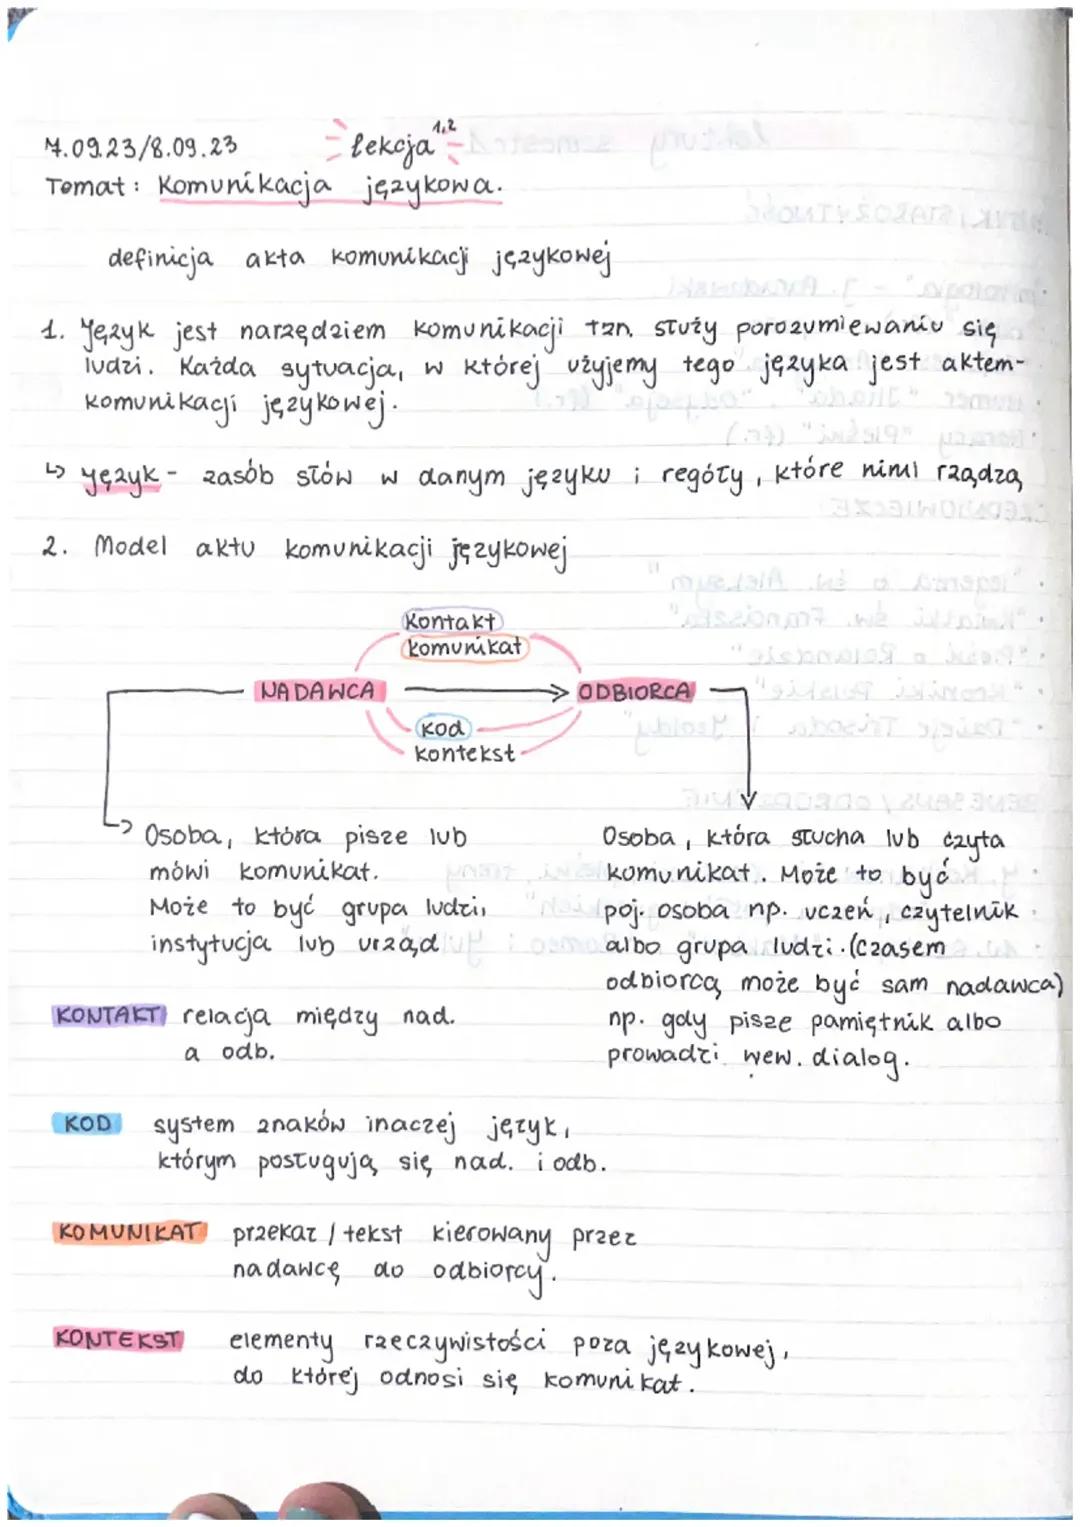 7.09.23/8.09.23 lekcja 1,2
Temat: Komunikacja językowa.
definicja akta komunikacji językowej
1. Język jest narzędziem komunikacji tzn. służy porozumiewaniu się
ludzi. Każda sytuacja, w której użyjemy tego języka jest aktem-
komunikacji językowej.
↳ język - zasób słów w danym języku i regóły, które nimi rządzą
2. Model aktu komunikacji językowej
Kontakt
komunikat
NADAWCA → ODBIORCA
kod
kontekst
Osoba, która pisze lub
mówi komunikat.
Może to być grupa ludzi,
instytucja lub urząd
Osoba, która słucha lub czyta
komunikat. Może to być
poj. osoba np. uczeń, czytelnik
albo grupa ludzi. (Czasem
odbiorcą może być sam nadawca)
np. gdy pisze pamiętnik albo
prowadzi wew. dialog.
KONTAKT relacja między nad.
a odb.
KOD system znaków inaczej język,
którym posługują się nad. i odb.
KOMUNIKAT przekaz / tekst kierowany przez
nadawcę do odbiorcy.
KONTEKST elementy rzeczywistości poza językowej,
do której odnosi się komunikat.